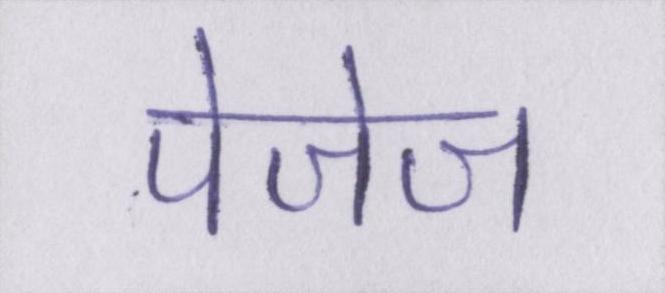 पेजेज